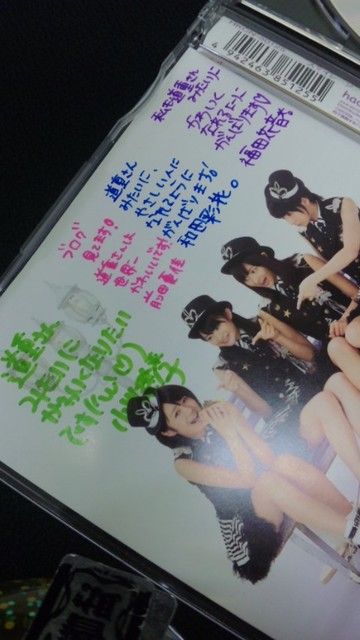 4942463851255
私も道重さん
みたいに
かわいく
なれるように
がんばります♡
福田花音
道重さん
みたいに、
やさしい人に
なれるように
がんばります!
和田彩花。
ブログ
見てます!
道重さんは
世界一
かわいいです!
前田憂佳
道重さん
みたいに
かわいくなりたい
です